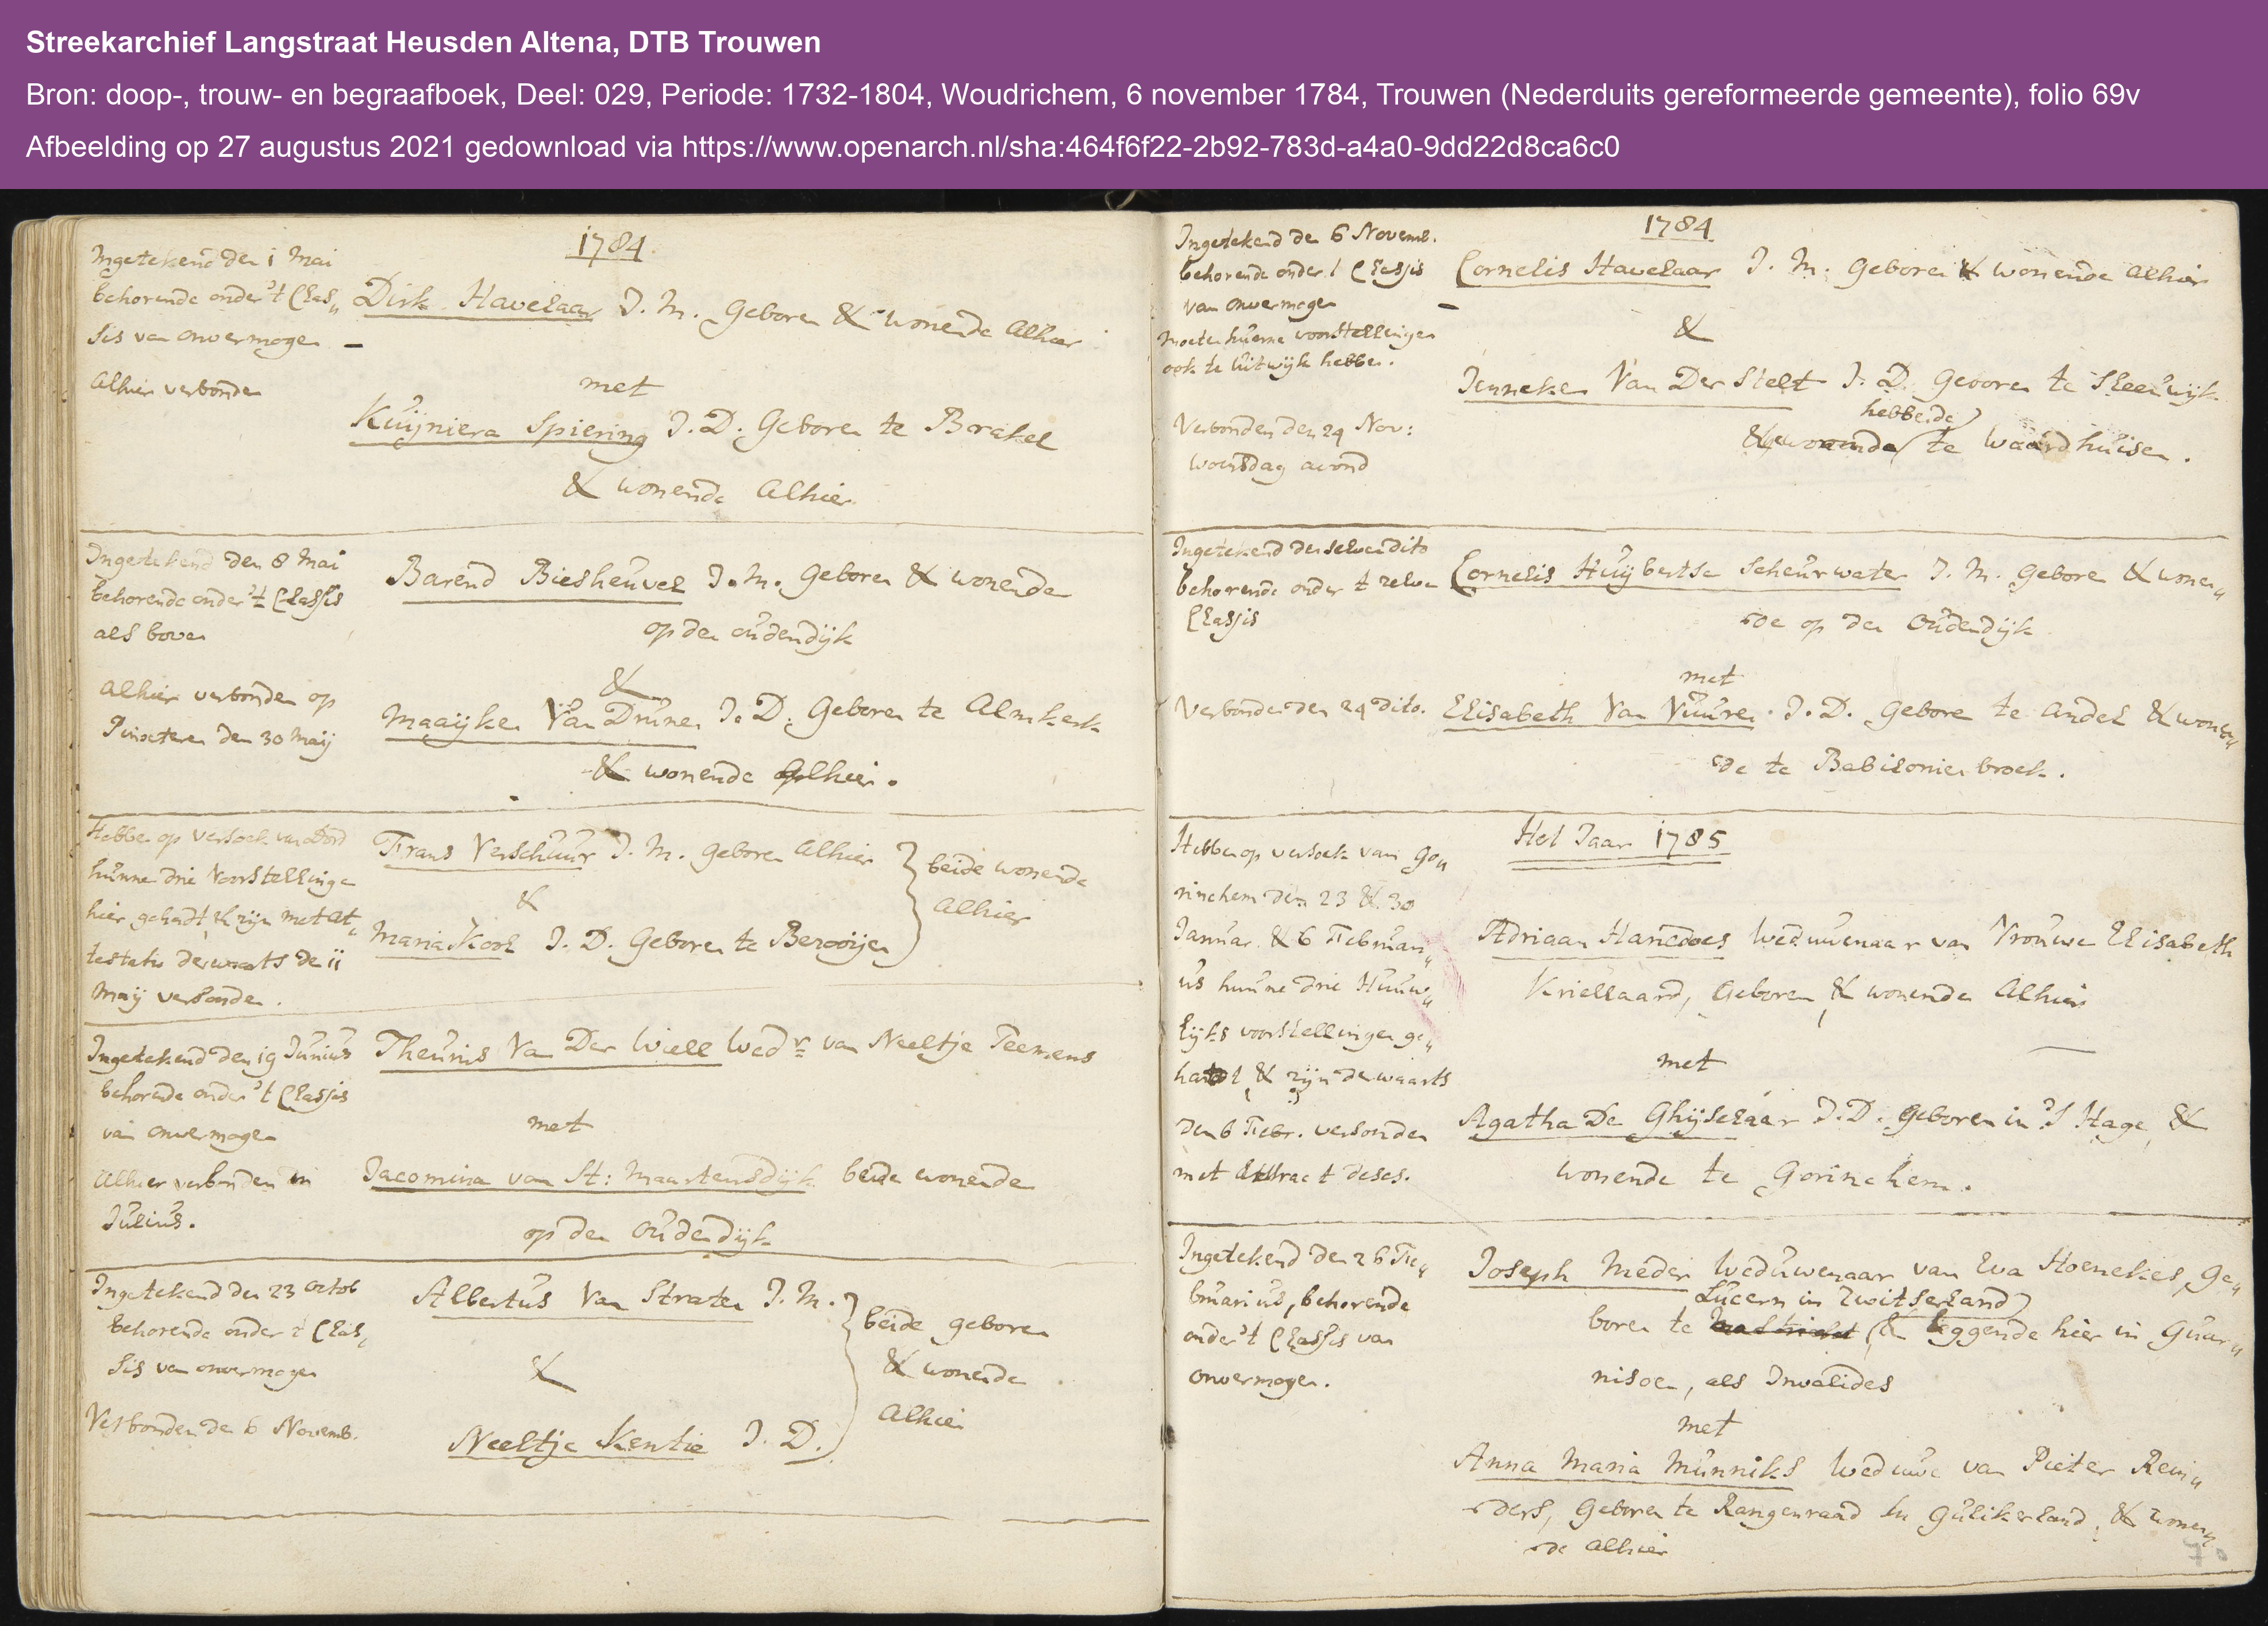 Streekarchief Langstraat Heusden Altena, DTB Trouwen
Bron: doop-, trouw- en begraafboek, Deel: 029, Periode: 1732-1804, Woudrichem, 6 november 1784, Trouwen (Nederduits gereformeerde gemeente), folio 69v
Afbeelding op 27 augustus 2021 gedownload via https://www.openarch.nl/sha:464f6f22-2b92-783d-a4a0-9dd22d8ca6c0
1784
Ingetekend den 1 Mai
behorende onder 't Clas„
sis van onvermogen –
Alhier verbonden
Dirk Havelaar J. M. Geboren & wonende Alhier
met
Kuijniera Spiering J. D. Geboren te Brakel
& wonende Alhier
Ingetekend den 8 Mai
behorende onder 't Classis
als boven
Alhier verbonden op
Pinxteren den 30 Maij
Barend Biesheuvel J. M. Geboren & wonende
op den oudendijk
&
Maaijken Van Drunen J. D. Geboren te Almkerk
& wonende Alhier.
Hebben op versoek van Dord
hunne drie Voorstellinge
hier gehadt, & zijn met at„
testatie derwaarts de 11
Maij versonden.
Frans Verschuur J. M. Geboren Alhier
&
Maria Kool J. D. Geboren te Berooijen
beide wonende
Alhier
Ingetekend den 19 Junius
behorende onder 't Classis
van onvermogen
Alhier verbonden in
Julius.
Theunis Van Der Wiell Wedr van Neeltje Teemens
met
Jacomina van St: Maartensdijk beide wonende
op den Oudendijk
Ingetekend den 23 Octob
behorende onder 't Clas„
sis van onvermogen
Verbonden de 6 Novemb.
Albertus Van Straten J. M.
&
Neeltje Kentie J. D.
beide geboren
& wonende
Alhier
1784
Ingetekend den 6 Novemb.
behorende onder 't Classis
van onvermogen –
moeten hunne voorstellingen
ook te Uitwijk hebben.
Verbonden den 24 Nov:
Woensdag avond
Cornelis Havelaar J. M. Geboren & wonende Alhier
&
Jenneken Van Der Stelt J. D. Geboren te Sleeuwijk
hebbende
& wonende te Waardhuisen.
Ingetekend den selven dito
behorende onder 't zelve
Classis
Verbonden den 24 dito.
Cornelis Huijbertse Scheurwater J. M. Geboren & wonen„
de op den Oudendijk
met
Elisabeth Van Vuuren J. D. Geboren te Andel & wonen„
de te Babilonienbroek.
Het Jaar 1785
Hebben op versoek van Go„
rinchem den 23 & 30
Januar. & 6 Februari„
us hunne drie Huuw„
lijks voorstellingen ge„
hadt, & zijn derwaarts
den 6 Febr. versonden
met Extract deses.
Adriaan Hanedoes Weduwenaar van Vrouwe Elisabeth
Kriellaard, Geboren & wonende Alhier
met
Agatha De Ghijselaar J. D. Geboren in 's Hage, &
wonende te Gorinchem.
Ingetekend den 26 Fe„
bruarius, behorende
onder 't Classis van
onvermogen.
Joseph Meder Weduwenaar van Eva Hoenekes, Ge„
Lucern in Zwitserland
boren te & leggende hier in Guar„
nisoen, als Invalides
met
Anna Maria Munniks Weduwe van Pieter Rein„
ders, Geboren te Rangenraad in Gulikerland, & wonen„
de Alhier